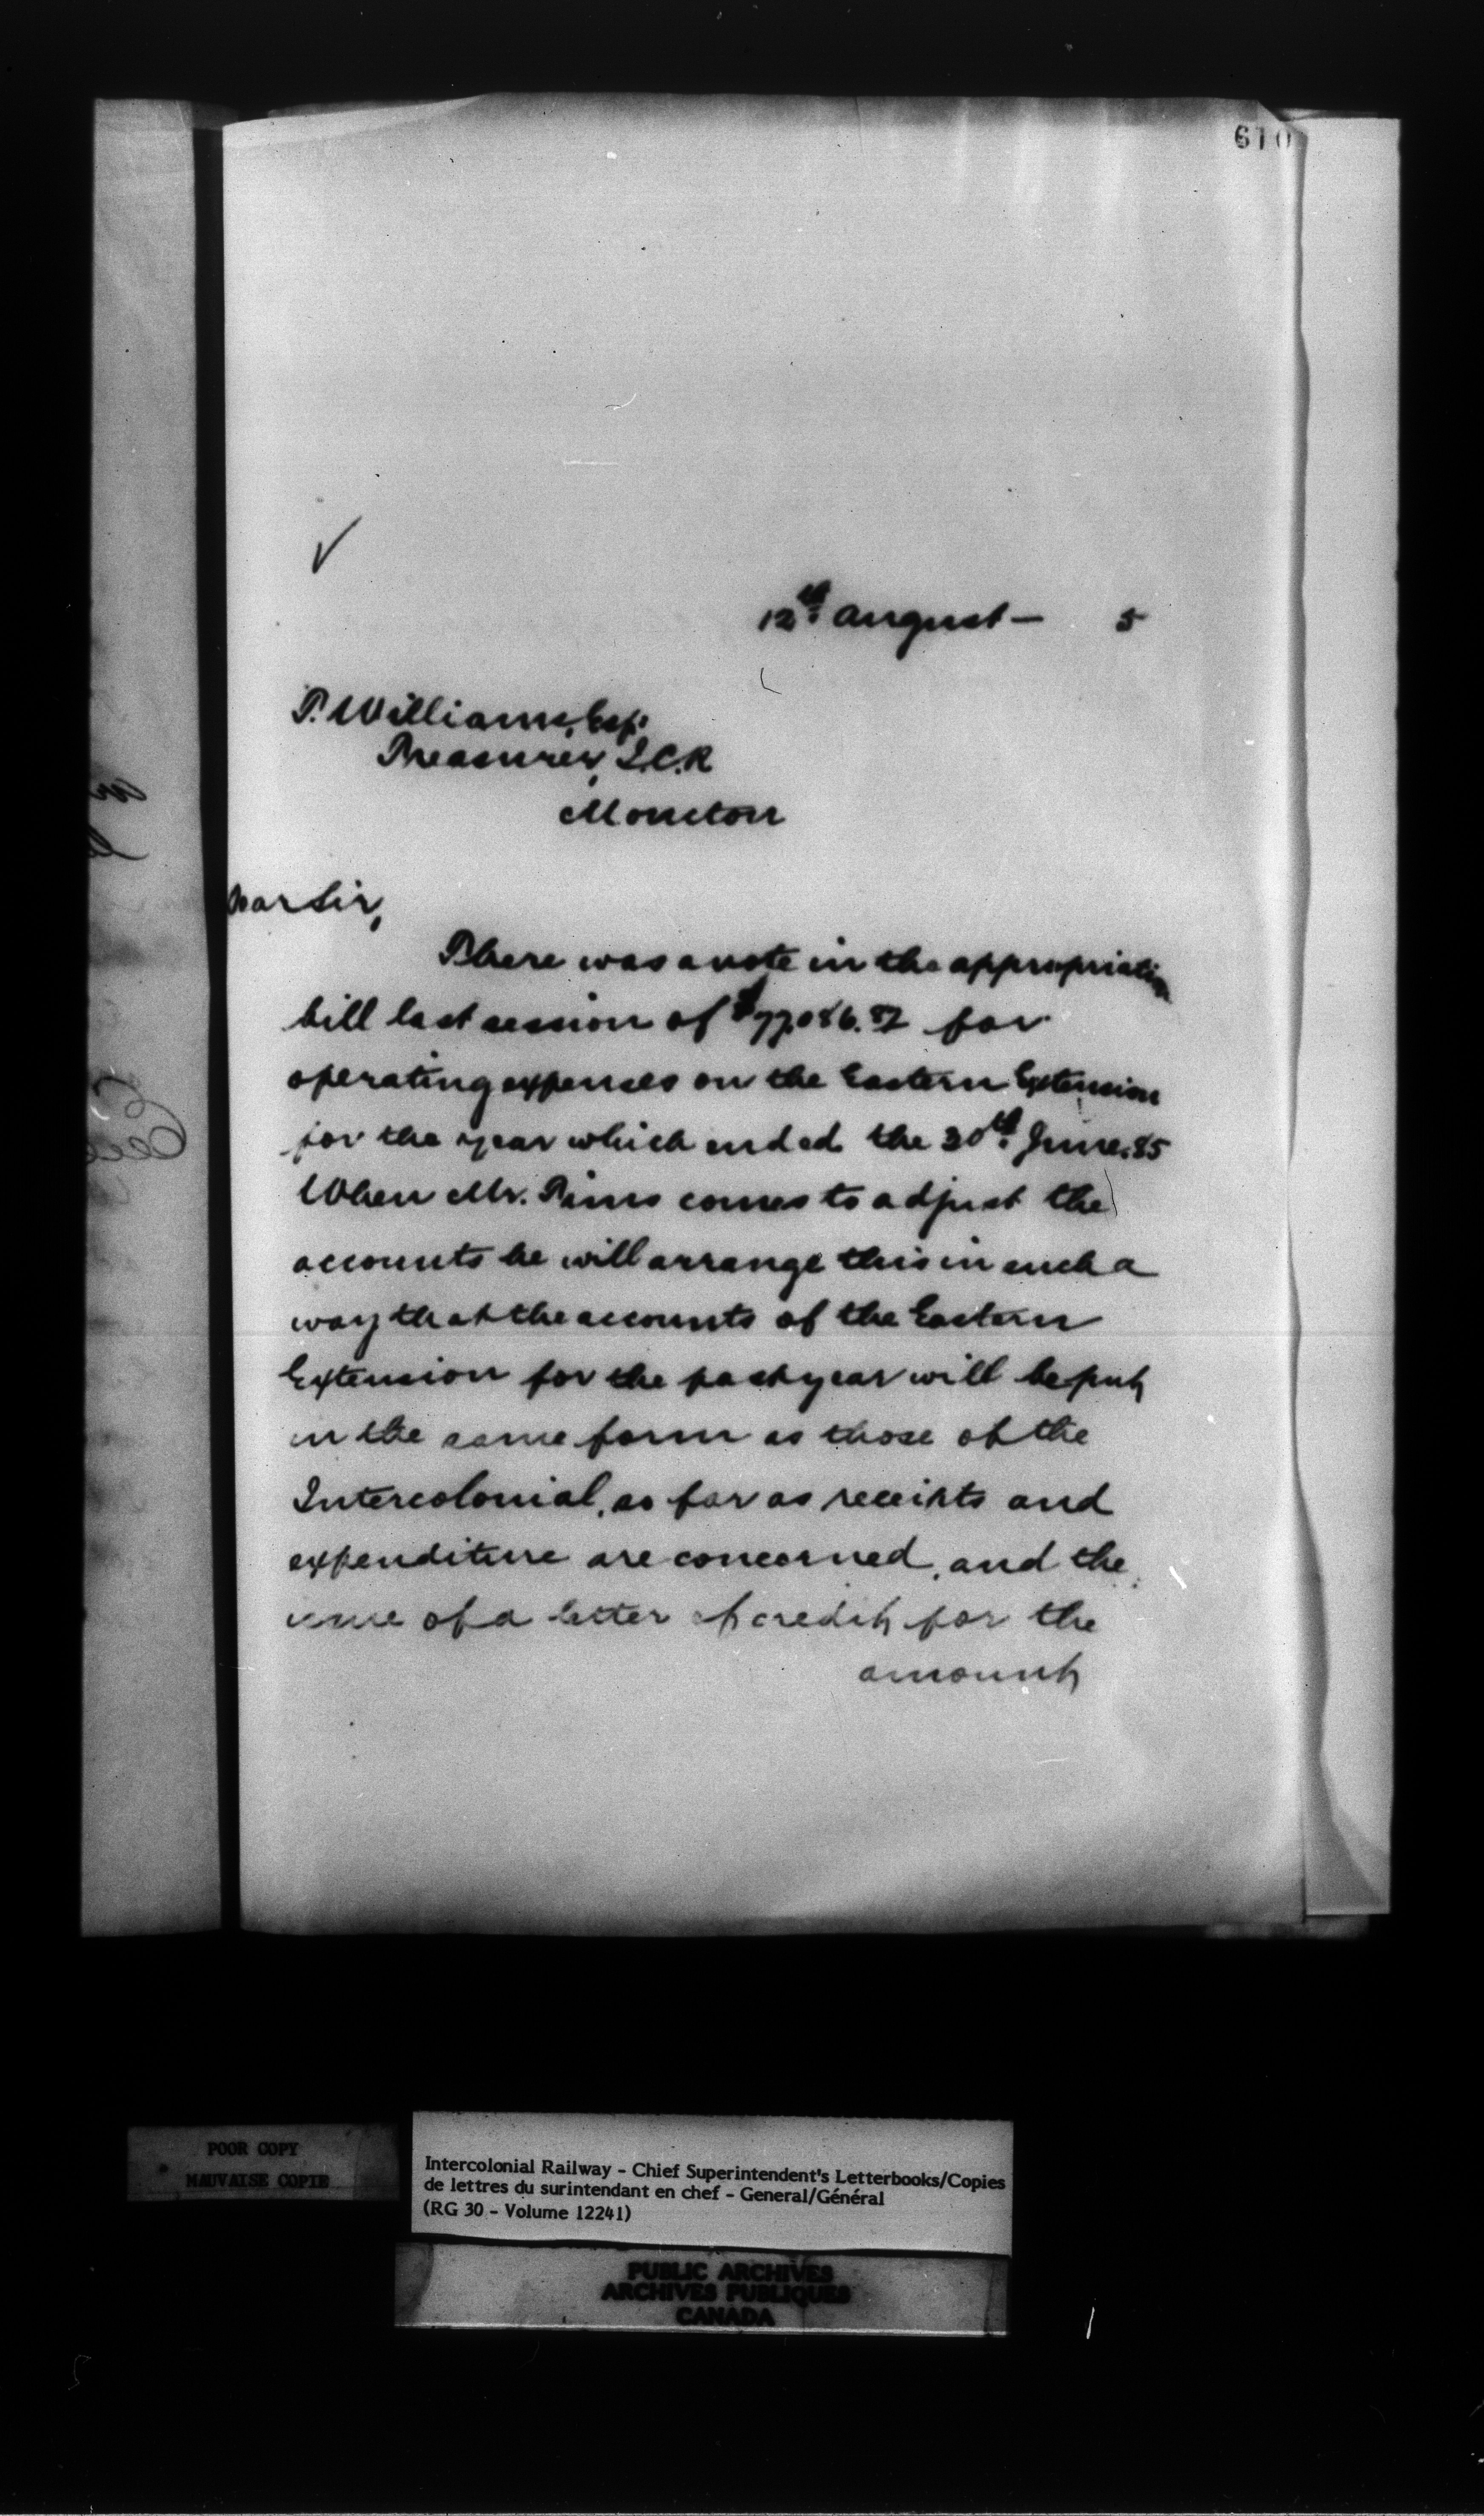 610
12th August — 5
T. Williams, Esq.
Treasurer, I.C.R
Moncton
Dear Sir,
There was a vote in the appropriation
bill last session of $77,086.82 for
operating expenses on the Eastern Extension
for the year which ended the 30th June. 85
When Mr. Tims comes to adjust the
accounts he will arrange this in such a
way that the accounts of the Eastern
Extension for the past year will be put
in the same form as those of the
Intercolonial, as far as receipts and
expenditure are concerned, and the
issue of a letter of credit for the
amount
POOR COPY
MAUVAISE COPIE
Intercolonial Railway - Chief Superintendent's Letterbooks/Copies
de lettres du surintendant en chef - General/Général
(RG 30 - Volume 12241)
PUBLIC ARCHIVES
ARCHIVES PUBLIQUES
CANADA